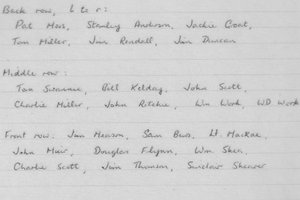 Back row, l to r:
Pat Moss, Stanley Anderson, Jackie Groat,
Tom Miller, Jim Rendall, Jim Duncan
Middle row:
Tom Sinclair, Bill Kelday, John Scott,
Charlie Miller, John Ritchie, Wm Work, WD Work
Front row. Jim Henson, Sam Buns, Lt. Mackae,
John Muir, Douglas Flynn, Wm Shea,
Charlie Scott, Jim Thomson, Sinclair Shearer